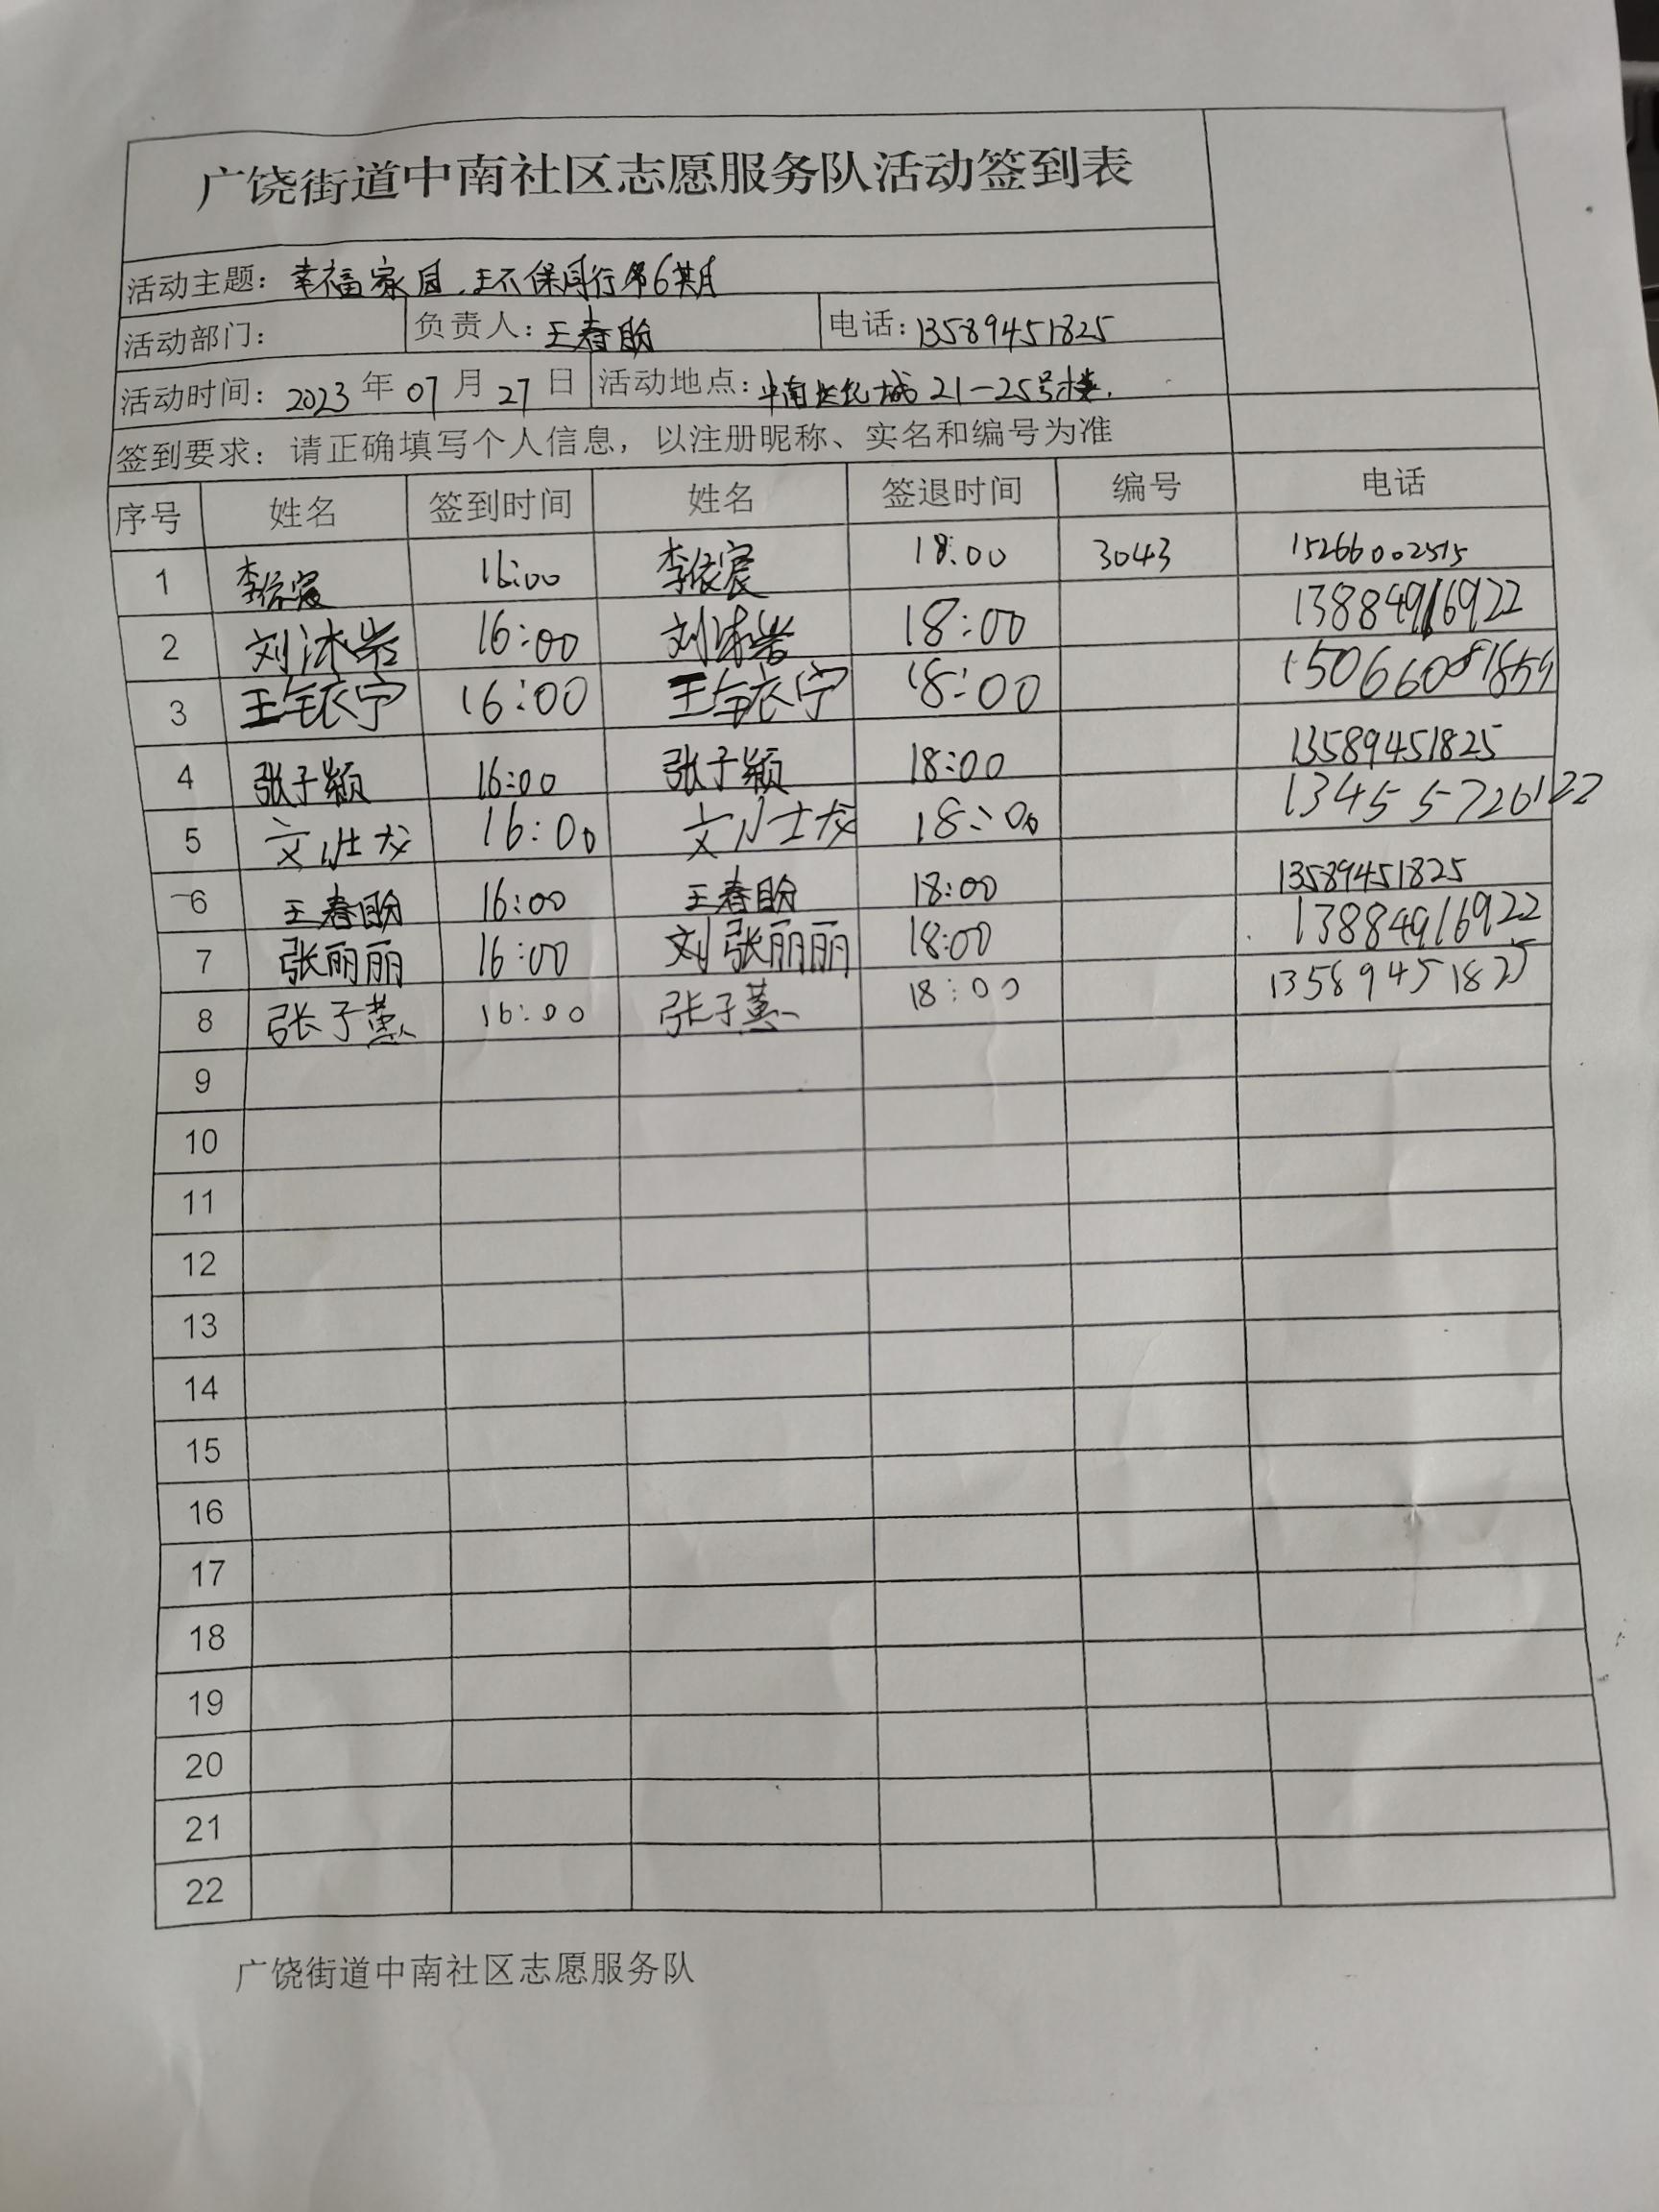 广饶街道中南社区志愿服务队活动签到表
活动主题: 幸福家园.环保同行第6期
活动部门: 负责人: 王春盼 电话: 13589451825
活动时间: 2023 年 07 月 27 日 活动地点: 中南世纪城 21-25号楼.
签到要求: 请正确填写个人信息，以注册昵称、实名和编号为准
序号 姓名 签到时间 姓名 签退时间 编号 电话
1 李依宸 16:00 李依宸 18:00 3043 15266002515
2 刘沐岩 16:00 刘沐岩 18:00 13884916922
3 王钰宁 16:00 王钰宁 18:00
4 张子颖 16:00 张子颖 18:00 13589451825
5 16:00 18:00
6 王春盼 16:00 王春盼 18:00 13589451825
7 张丽丽 16:00 刘 张丽丽 18:00 13884916922
8 张子薰 16:00 张子薰 18:00 13589451825
9
10
11
12
13
14
15
16
17
18
19
20
21
22
广饶街道中南社区志愿服务队